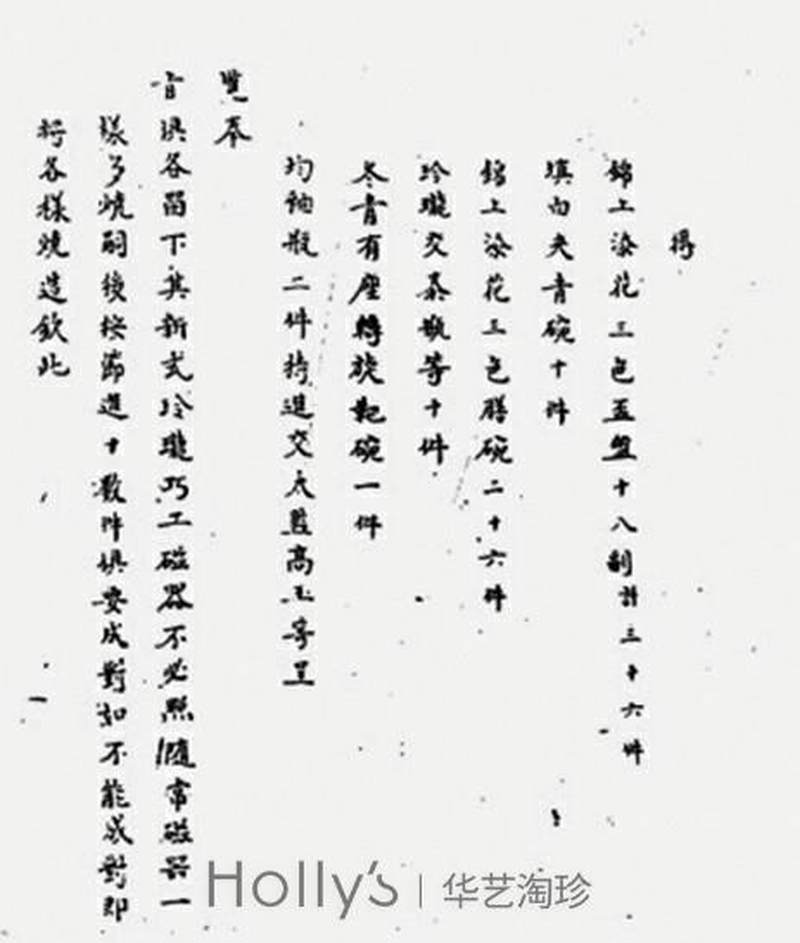 得
錦上添花三色盃盤十八副計三十六件
填白夾青碗十件
錦上添花三色膳碗二十六件
玲瓏交泰瓶等十件
冬青有座轉旋靶碗一件
均釉瓶二件持進交太監高玉等呈
覽奉
旨俱各留下其新式玲瓏巧工磁器不必照隨常磁器一
樣多燒嗣後按節進十數件俱要成對如不能成對即
將各樣燒造欽此
Holly's | 华艺淘珍